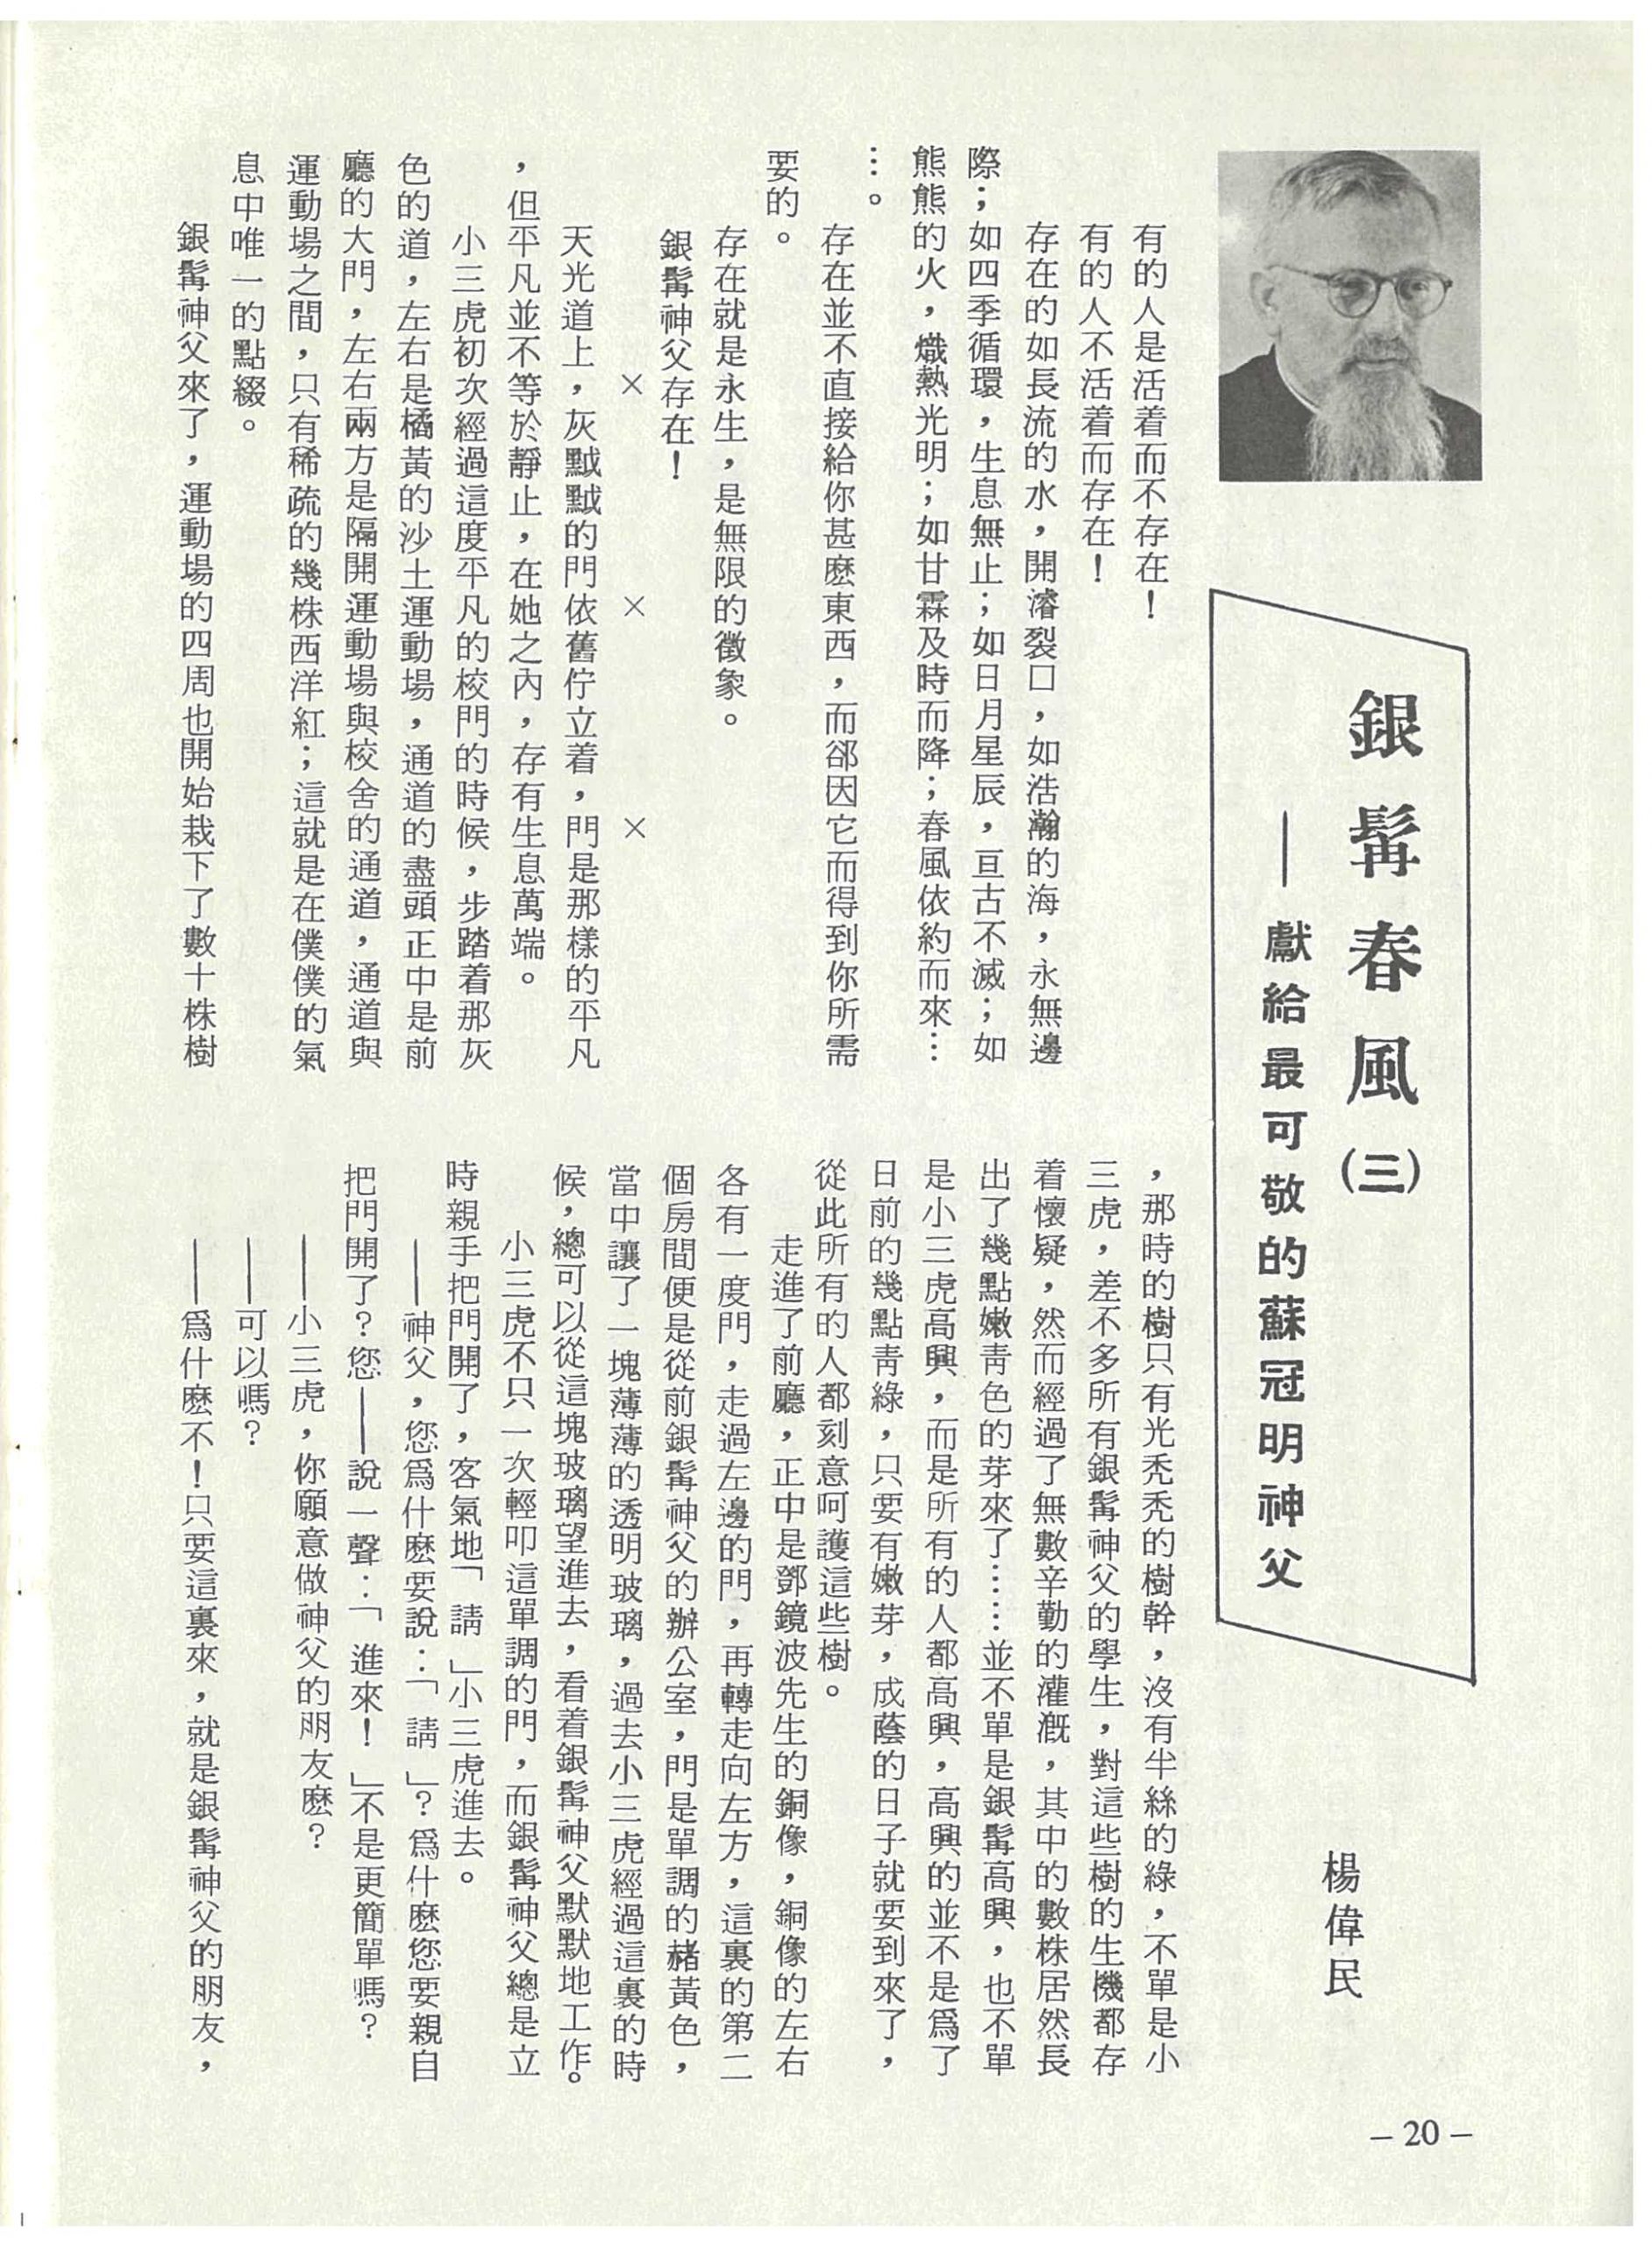 銀髯春風(三)
——獻給最可敬的蘇冠明神父
楊偉民
有的人是活着而不存在！
有的人不活着而存在！
存在的如長流的水，開濬裂口，如浩瀚的海，永無邊
際；如四季循環，生息無止；如日月星辰，亘古不滅；如
熊熊的火，熾熱光明；如甘霖及時而降；春風依約而來…
…。
存在並不直接給你甚麽東西，而郤因它而得到你所需
要的。
存在就是永生，是無限的徵象。
銀髯神父存在！
× × ×
天光道上，灰黬黬的門依舊佇立着，門是那樣的平凡
，但平凡並不等於靜止，在她之內，存有生息萬端。
小三虎初次經過這度平凡的校門的時候，步踏着那灰
色的道，左右是橘黃的沙土運動場，通道的盡頭正中是前
廳的大門，左右兩方是隔開運動場與校舍的通道，通道與
運動場之間，只有稀疏的幾株西洋紅；這就是在僕僕的氣
息中唯一的點綴。
銀髯神父來了，運動場的四周也開始栽下了數十株樹
，那時的樹只有光禿禿的樹幹，沒有半絲的綠，不單是小
三虎，差不多所有銀髯神父的學生，對這些樹的生機都存
着懷疑，然而經過了無數辛勤的灌漑，其中的數株居然長
出了幾點嫩靑色的芽來了……並不單是銀髯高興，也不單
是小三虎高興，而是所有的人都高興，高興的並不是爲了
日前的幾點靑綠，只要有嫩芽，成蔭的日子就要到來了，
從此所有的人都刻意呵護這些樹。
走進了前廳，正中是鄧鏡波先生的銅像，銅像的左右
各有一度門，走過左邊的門，再轉走向左方，這裏的第二
個房間便是從前銀髯神父的辦公室，門是單調的赭黃色，
當中讓了一塊薄薄的透明玻璃，過去小三虎經過這裏的時
候，總可以從這塊玻璃望進去，看着銀髯神父默默地工作。
小三虎不只一次輕叩這單調的門，而銀髯神父總是立
時親手把門開了，客氣地「請」小三虎進去。
——神父，您爲什麽要說：「請」？爲什麽您要親自
把門開了？您——說一聲：「進來！」不是更簡單嗎？
——小三虎，你願意做神父的朋友麽？
——可以嗎？
——爲什麽不！只要這裏來，就是銀髯神父的朋友，
– 20 –